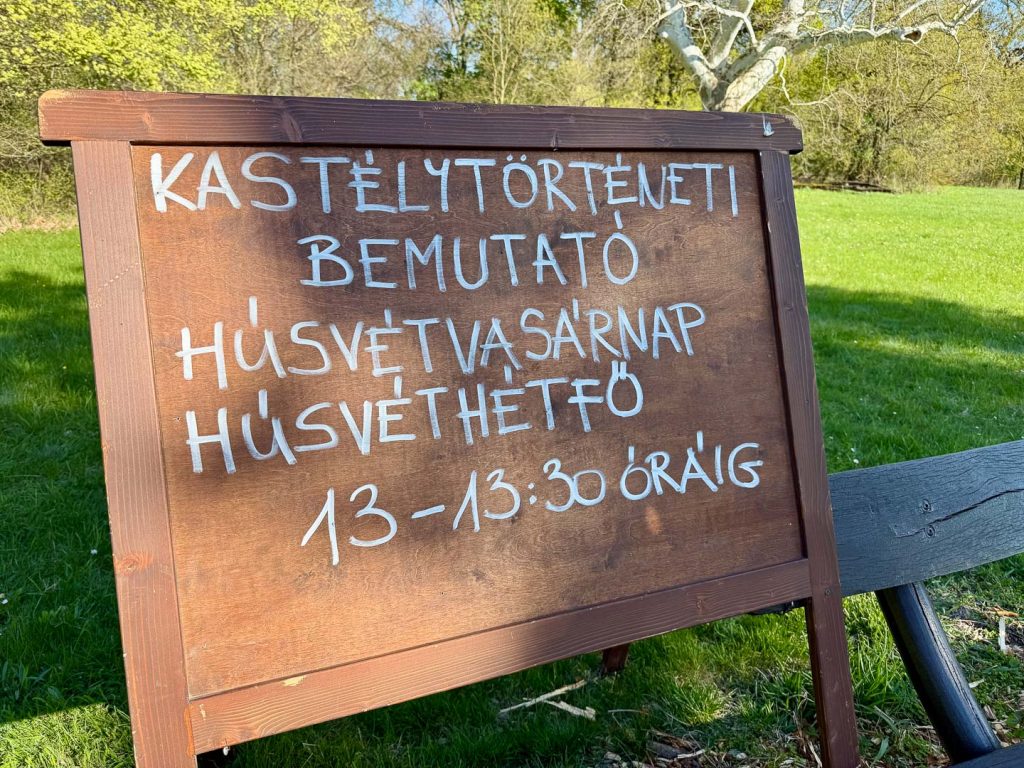 KASTÉLYTÖRTÉNETI
BEMUTATÓ
HÚSVÉTVASÁRNAP
HÚSVÉTHÉTFŐ
13-13:30 ÓRÁIG